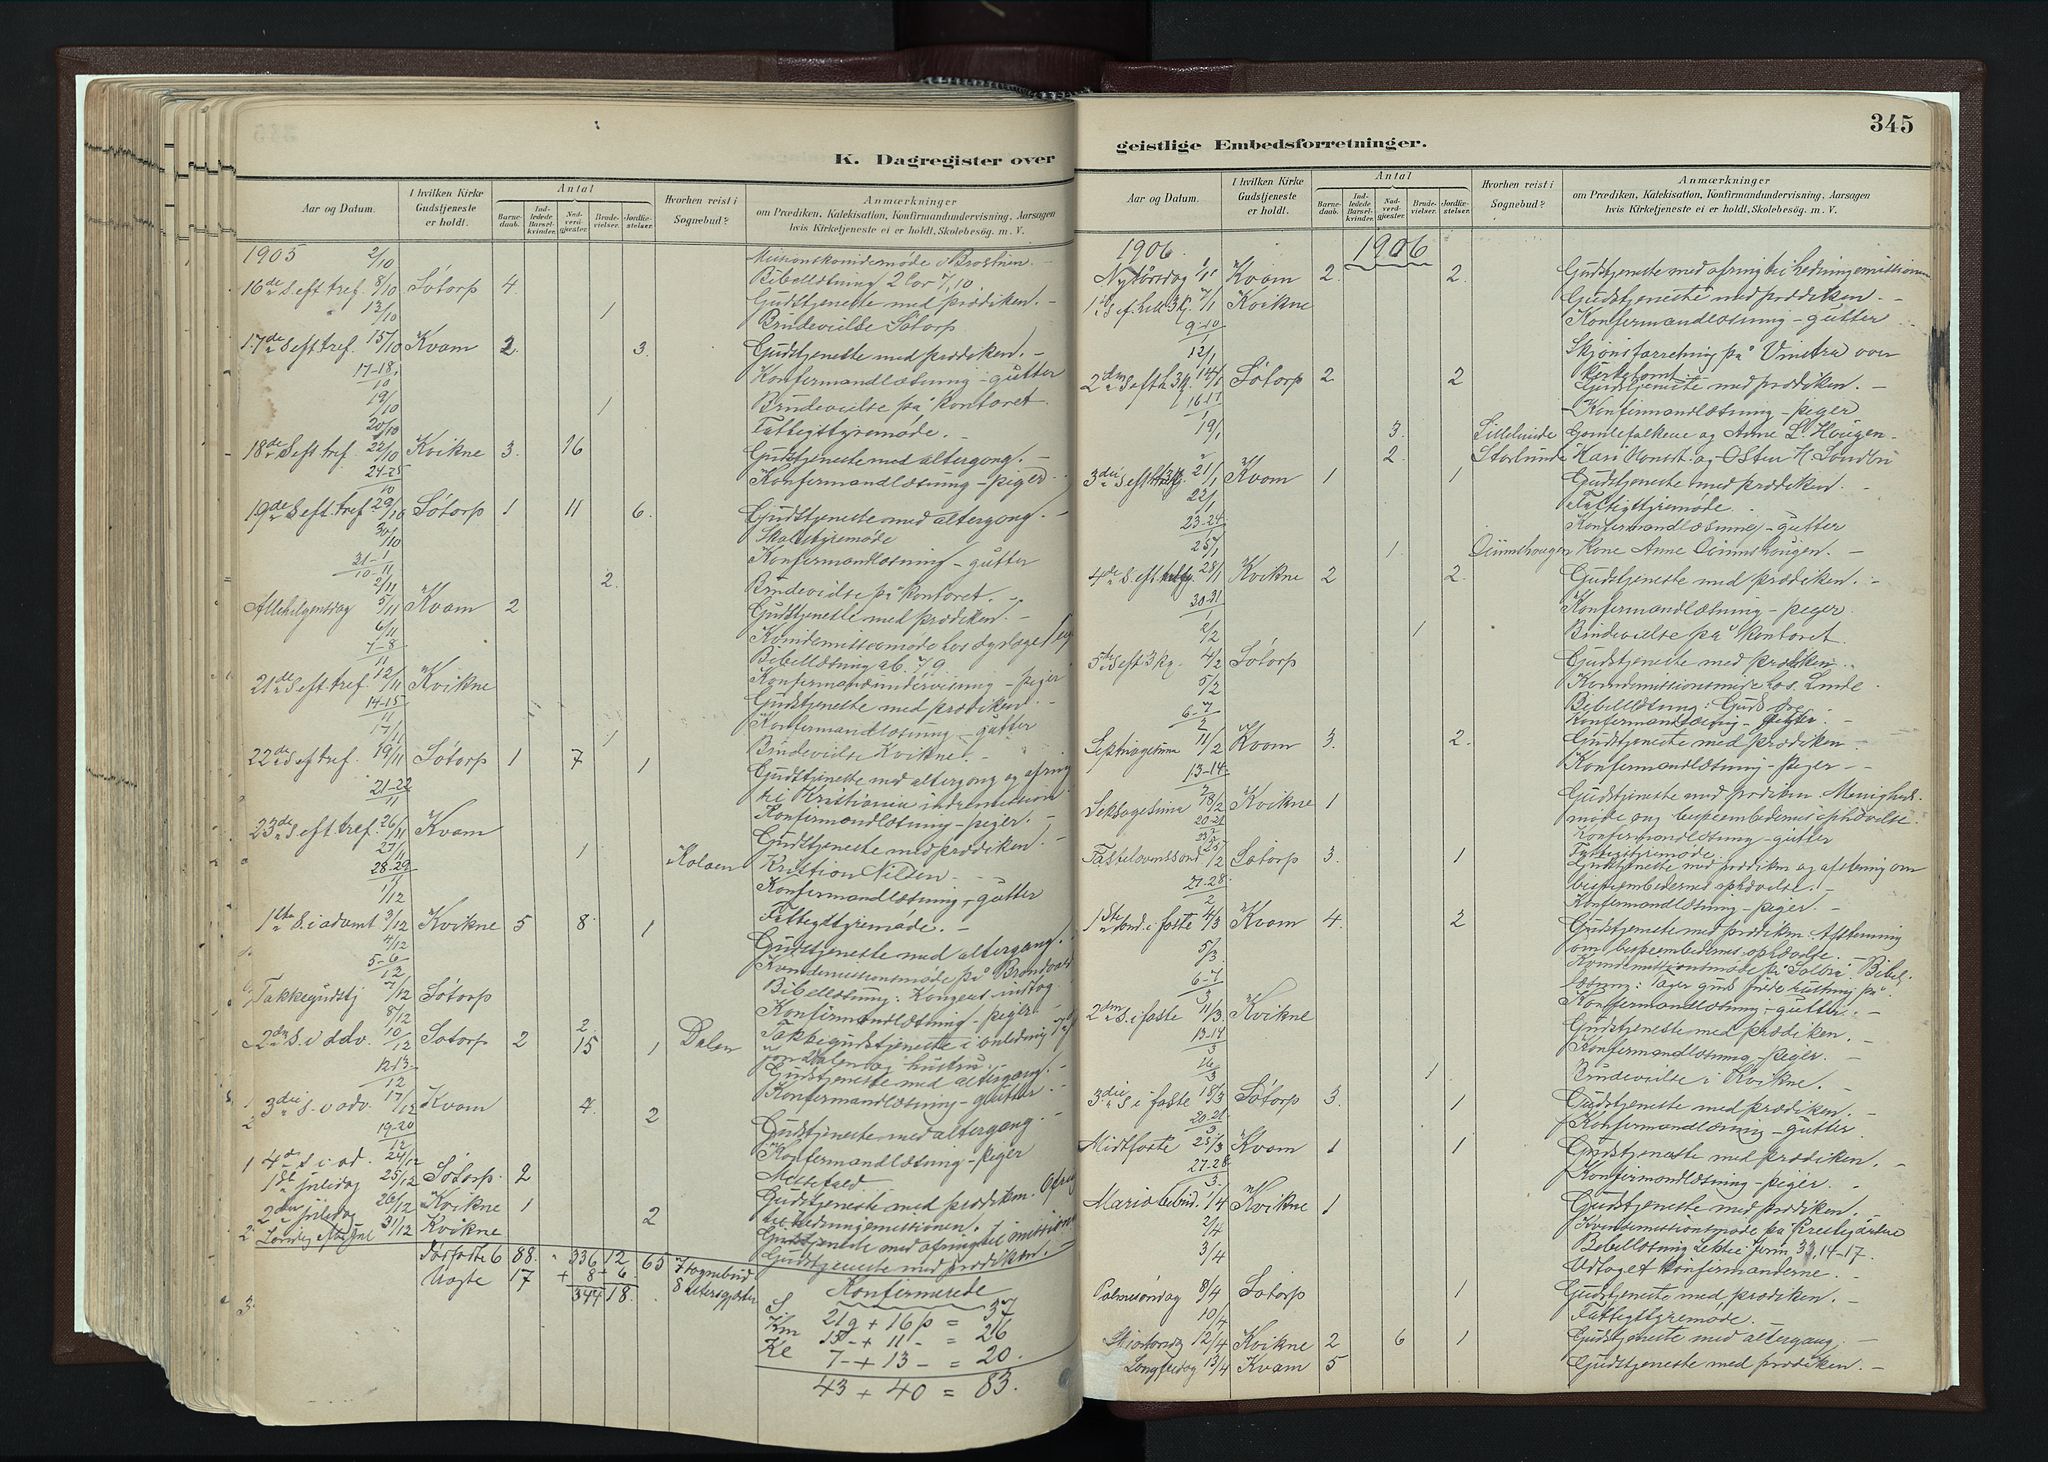 K. Dagregister over
Aar og Datum.
I hvilken Kirke Gudstjeneste er holdt.
Antal
Barnedaab.
Indledede Barselkvinder.
Nadverdgjester.
Brudevielser.
Jordfæstelser.
Hvorhen reist i Sognebud?
Anmærkninger
om Prædiken, Katekisation, Konfirmandundervisning, Aarsagen
hvis Kirketjeneste ei er holdt, Skolebesøg. m. V.
1905 2/10
16de S. eft. tref. 8/10 Sødorp 4 Gudstjeneste med prædiken. –
13/10 1 Brudevielse Sødorp
17de S eft tref. 15/10 Kvam 2 3 Gudstjeneste med prædiken. –
17-18/10 Konfirmandlæsning – gutter
19/10 1 Brudevielse på kontoret
20/10 Fattigstyremøde. –
18de S eft tref 22/10 Kvikne 3 16 Gudstjeneste med altergang. –
24-25/10 Konfirmandlæsning – piger
19de S eft. tref 29/10 Sødorp 1 11 6 Gudstjeneste med altergang. –
30/10 Skolestyremøde
31/10-1/11 Konfirmandlæsning – gutter
2/11 2 Brudevielse på kontoret. –
Allehelgensdag 5/11 Kvam 2 Gudstjeneste med prædiken. –
6/11
7-8/11 Konfirmandundervisning – piger
21de S eft tref. 12/11 Kvikne Gudstjeneste med prædiken. –
14-15/11 Konfirmandlæsning – gutter
17/11 1 Brudevielse Kvikne. –
22de S eft tref. 19/11 Sødorp 1 7 1 Gudstjeneste med altergang og ofring
til Kristiania indremission
21-22/11 Konfirmandlæsning – piger. –
23de S. eft tref. 26/11 Kvam Gudstjeneste med prædiken. –
27/11 1 Kristian Nilsen
28-29/11 Konfirmandlæsning – gutter
1/12 Fattigstyremøde. –
1ste S. i advent 3/12 Kvikne 5 8 1 Gudstjeneste med altergang. –
4/12 Kvindemissionsmøde på
Bibellæsning: Kongens indtog
5-6/12 Konfirmandlæsning – piger
Takkegudstj 7/12 Sødorp Takkegudstjeneste i anledning
8/12 2 Dalen og hustru. –
2den S. i adv. 10/12 Sødorp 2 15 1 Gudstjeneste med altergang. –
12-13/12 Konfirmandlæsning – gutter
3die S. i adv. 17/12 Kvam 4 2 Gudstjeneste med altergang. –
19-20/12 Konfirmandlæsning – piger
4de S i ad. 24/12 Messefald
1ste juledag 25/12 Sødorp 2 Gudstjeneste med prædiken. Ofring
til Hedningemissionen.
2den juledag 26/12 Kvikne 1 2 Gudstjeneste med ofring til missionen
31/12 Kvikne Gudstjeneste med prædiken. –
88 336 12 65 7 sognebud
17 + 8 + 6 8 altergjester
344 18
Konfirmerede
S. 21g + 16p = 37
Km 15 – + 11 – = 26
Kv 7 – + 13 – = 20.
43 + 40 = 83.
345
geistlige Embedsforretninger.
Aar og Datum.
I hvilken Kirke Gudstjeneste er holdt.
Antal
Barnedaab.
Indledede Barselkvinder.
Nadverdgjester.
Brudevielser.
Jordfæstelser.
Hvorhen reist i Sognebud?
Anmærkninger
om Prædiken, Katekisation, Konfirmandundervisning, Aarsagen
hvis Kirketjeneste ei er holdt, Skolebesøg. m. V.
1906. 1906
Nytårsdag 1/1 Kvam 2 2 Gudstjeneste med ofring til hedningemissionen
7/1 Kvikne Gudstjeneste med prædiken. –
9-10/1 Konfirmandlæsning – gutter
12/1 Skjønsforretning på Vinstra over
kirketomt.
14/1 Sødorp 2 2 Gudstjeneste med prædiken. –
16-17/1 Konfirmandlæsning – piger
19/1 3 Lillelunde Gamlefolkene og Anne L. Hougen –
2 Storlunde
21/1 Kvam 1 1 Gudstjeneste med prædiken. –
22/1 Fattigstyremøde.
23-24/1 Konfirmandlæsning – gutter
25/1 1 Kone Anne
28/1 Kvikne 2 2 Gudstjeneste med prædiken. –
30-31/1 Konfirmandlæsning – piger.
2/2 1 Brudevielse på kontoret.
4/2 Sødorp Gudstjeneste med prædiken. –
5/2 Kvindemissionsmøde hos Linde
6-7/2 Konfirmandlæsning – gutter. –
Septuagesima 11/2 Kvam 3 2 Gudstjeneste med prædiken –
13-14/2 Konfirmandlæsning – piger –
Seksagesima 18/2 Kvikne 1 Gudstjeneste med prædiken Menighedsmøde
ophævelse.
20-21/2 Konfirmandlæsning – gutter
Fattigstyremøde
Fastelavnssønd 25/2 Sødorp 3 1 Gudstjeneste med prædiken og afstemning om
bispeembedernes ophævelse. –
27-28/2 Konfirmandlæsning – piger. –
1ste Sønd. i faste 4/3 Kvam 4 2 Gudstjeneste med prædiken Afstemning
om bispeembedernes ophævelse. –
5/3 Kvindemissionsmøde på Solbrå.
6-7/3 Konfirmandlæsning – gutter. –
2den S. i faste 11/3 Kvikne Gudstjeneste med prædiken.
13-14/3 Konfirmandlæsning – piger. –
16/3 1 Brudevielse i Kvikne. –
3die S i faste 18/3 Sødorp 3 1 Gudstjeneste med prædiken. –
20-21/3 Konfirmandlæsning – gutter
Midtfaste 25/3 Kvam 1 1 Gudstjeneste med prædiken. –
27-28/3 Konfirmandlæsning – piger. –
Maria bebud. 1/4 Kvikne 1 Gudstjeneste med prædiken.
2/4 Kvindemissionsmøde på
3/4 Udtaget konfirmanderne. –
Palmesøndag 8/4 Sødorp 1 Gudstjeneste med prædiken. –
10/4 Fattigstyremøde. –
Skjærtorsdag 12/4 Kvikne 2 6 1 Gudstjeneste med altergang. –
Langfredag 13/4 Kvam 5 Gudstjeneste med prædiken. –